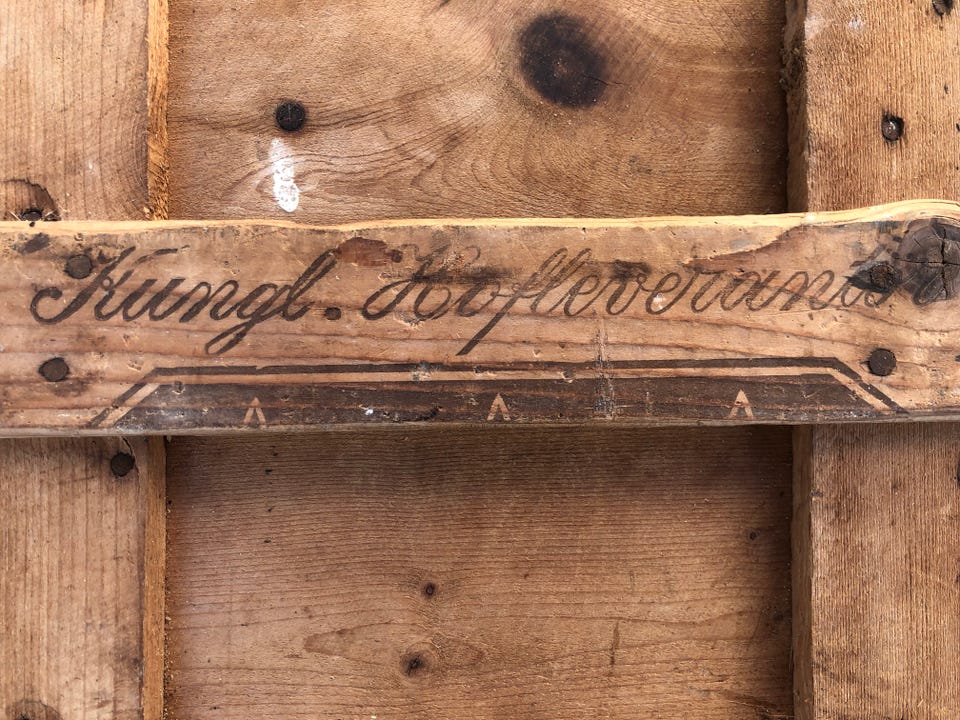 Kungl. Hofleverantör